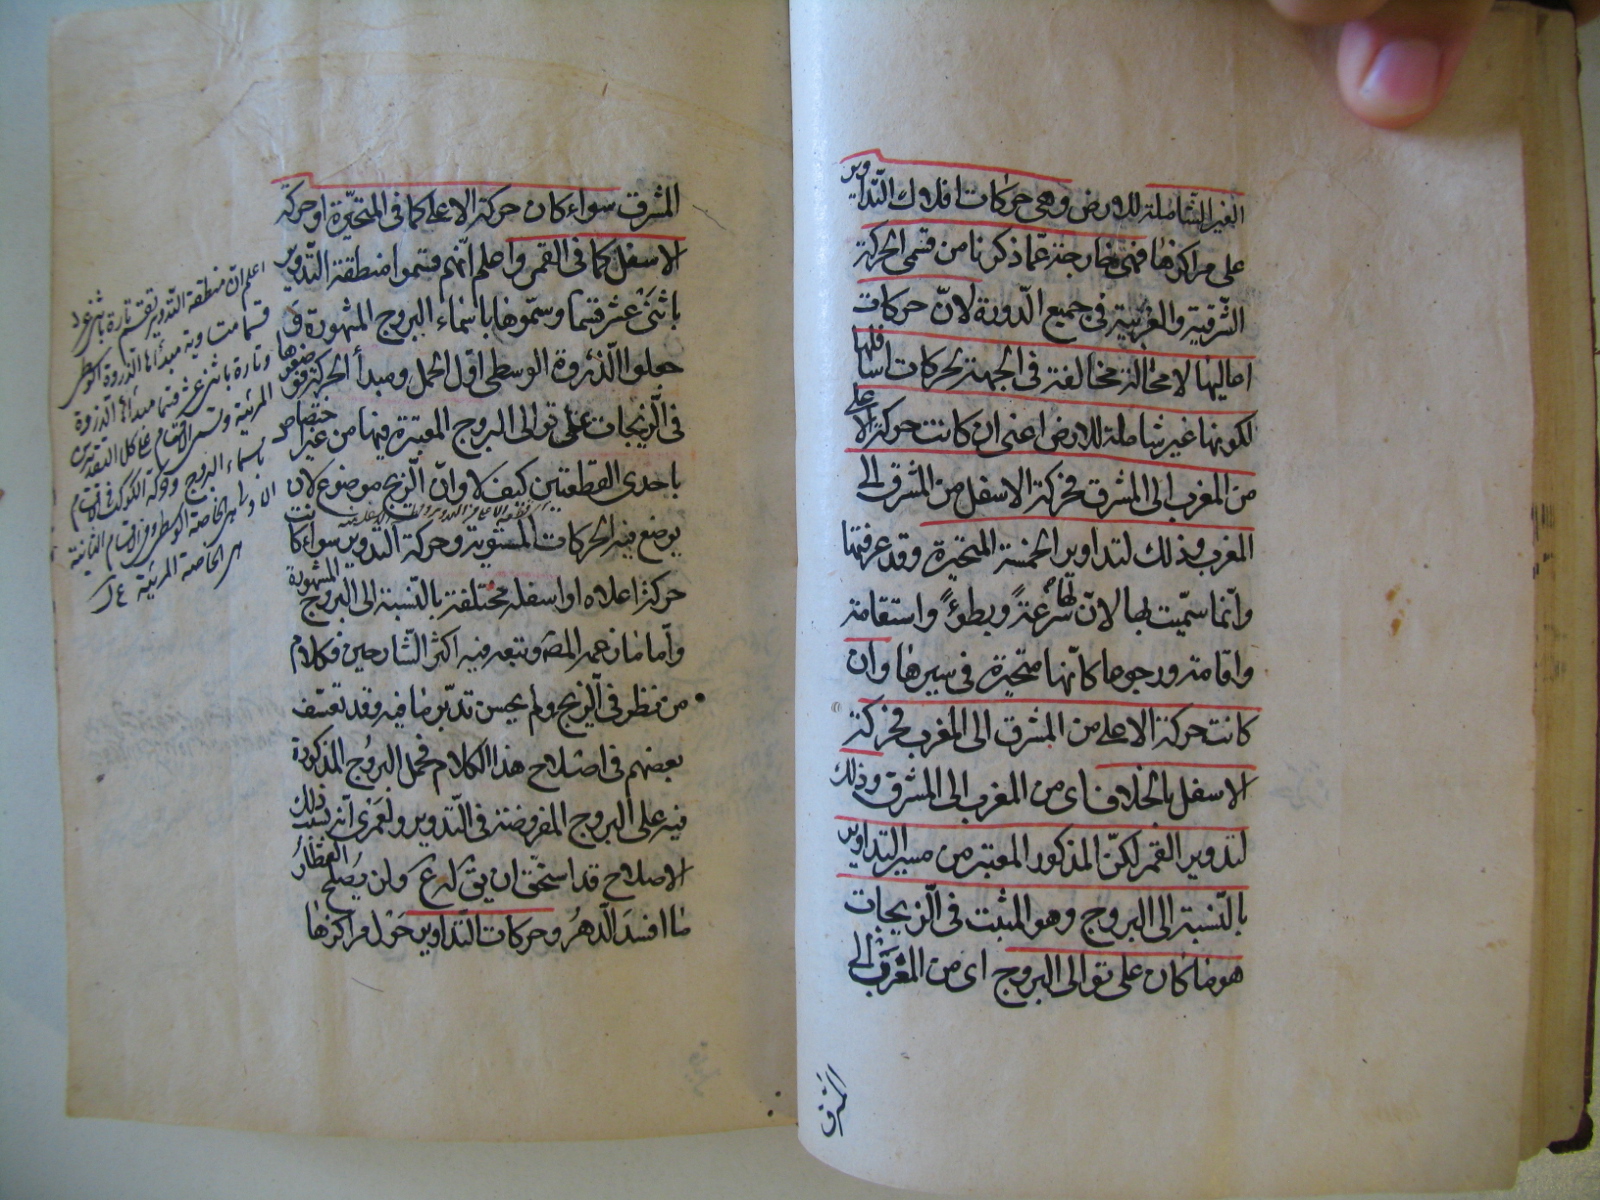 الغير الشاملة للارض وهى حركات افلاك التداوير
على مراكزها فهى خارجة عما ذكرنا من قسمى الحركة
الشرقية والغربية فى جميع الدورة لان حركات
اعاليها لا محالة مخالفة فى الجهة لحركات اسافلها
لكونها غير شاملة للارض اعنى ان كانت حركة الاعلى
من المغرب الى المشرق فحركة الاسفل من المشرق الى
المغرب وذلك لتداوير الخمسة المتحيرة وقد عرفتها
وانما سميت بها لان لها سرعةً وبطؤً واستقامة
واقامة ورجوعا كانها متحيرة فى سيرها وان
كانت حركة الاعلى من المشرق الى المغرب فحركة
الاسفل بالخلاف اى من المغرب الى المشرق وذلك
لتدوير القمر لكن المذكور المعتبر من مسير التداوير
بالنسبة الى البروج وهو المثبت فى الزيجات
هو ما كان على توالى البروج اى من المغرب الى
المشرق
المشرق سواء كان حركة الاعلى كما فى المتحيرة او حركة
الاسفل كما فى القمر واعلم انهم قسموا منطقة التدوير
باثنى عشر قسما وسموها باسماء البروج المشهورة و
جعلوا الذروة الوسطى اول الحمل ومبدأ الحركة فوضعوها
فى الزيجات على توالى البروج المعتبرة فيها من غير اختصاص
باحدى القطعتين كيف لا وان الزيج موضوع لان
يوضع فيه الحركات المستوية وحركة التدوير سواء كانت
حركة اعلاه او اسفله مختلفة بالنسبة الى البروج المشهورة
واما ما زعمه المصـ وتبعه فيه اكثر الشارحين فكلام
من نظر فى الزيج ولم يحسن تدبر ما فيه وقد تعسف
بعضهم فى اصلاح هذا الكلام فحمل البروج المذكورة
فيه على البروج المفروضة فى التدوير ولعمرى انه بسبب ذلك
الاصلاح قد استحق ان يق له ع ولن يصلح العطار
ما افسد الدهر وحركات التداوير حول مراكزها
اعلم ان منطقة التدوير تقسم تارة باثنى عشر
قسما متساوية مبدأها الذروة الوسطى
وتارة باثنى عشر قسما مبدأها الذروة
المرئية وتسمى الاقسام على كل التقديرين
باسماء البروج وحركة الكوكب فى الاقسام
الاولى هى الخاصة الوسطى وفى الاقسام الثانية
هى الخاصة المرئية